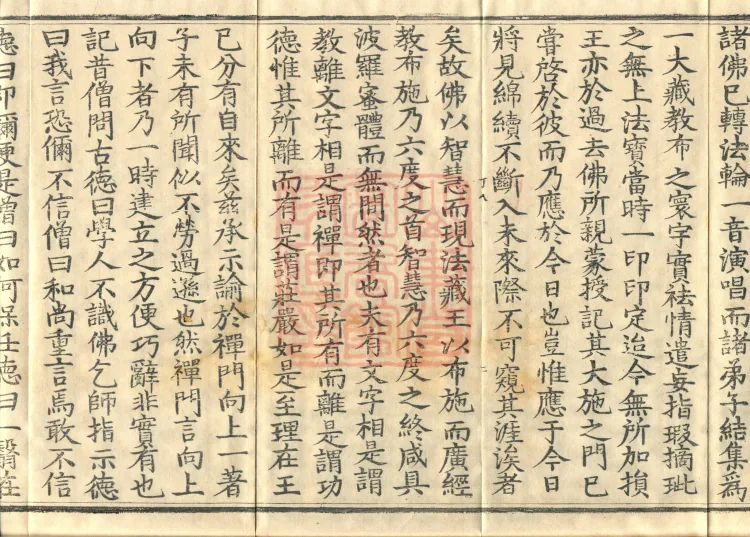 諸佛已轉法輪一音演唱而諸弟子結集爲
一大藏教布之寰宇實祛情遣妄指瑕摘玼
之無上法寶當時一印印定迨今無所加損
王亦於過去佛所親蒙授記其大施之門已
嘗啓於彼而乃應於今日也豈惟應于今日
將見綿續不斷入未來際不可窺其涯涘者
丁八
矣故佛以智慧而現法藏王以布施而廣經
教布施乃六度之首智慧乃六度之終咸具
波羅蜜體而無間然者也夫有文字相是謂
教離文字相是謂禪即其所有而離是謂功
德惟其所離而有是謂莊嚴如是至理在王
已分有自來矣茲承示諭於禪門向上一著
子未有所聞似不勞過遜也然禪門言向上
向下者乃一時建立之方便巧辭非實有也
記昔僧問古德曰學人不識佛乞師指示德
曰我言恐儞不信僧曰和尚重言焉敢不信
德曰即儞便是僧曰如何保任德曰一翳在